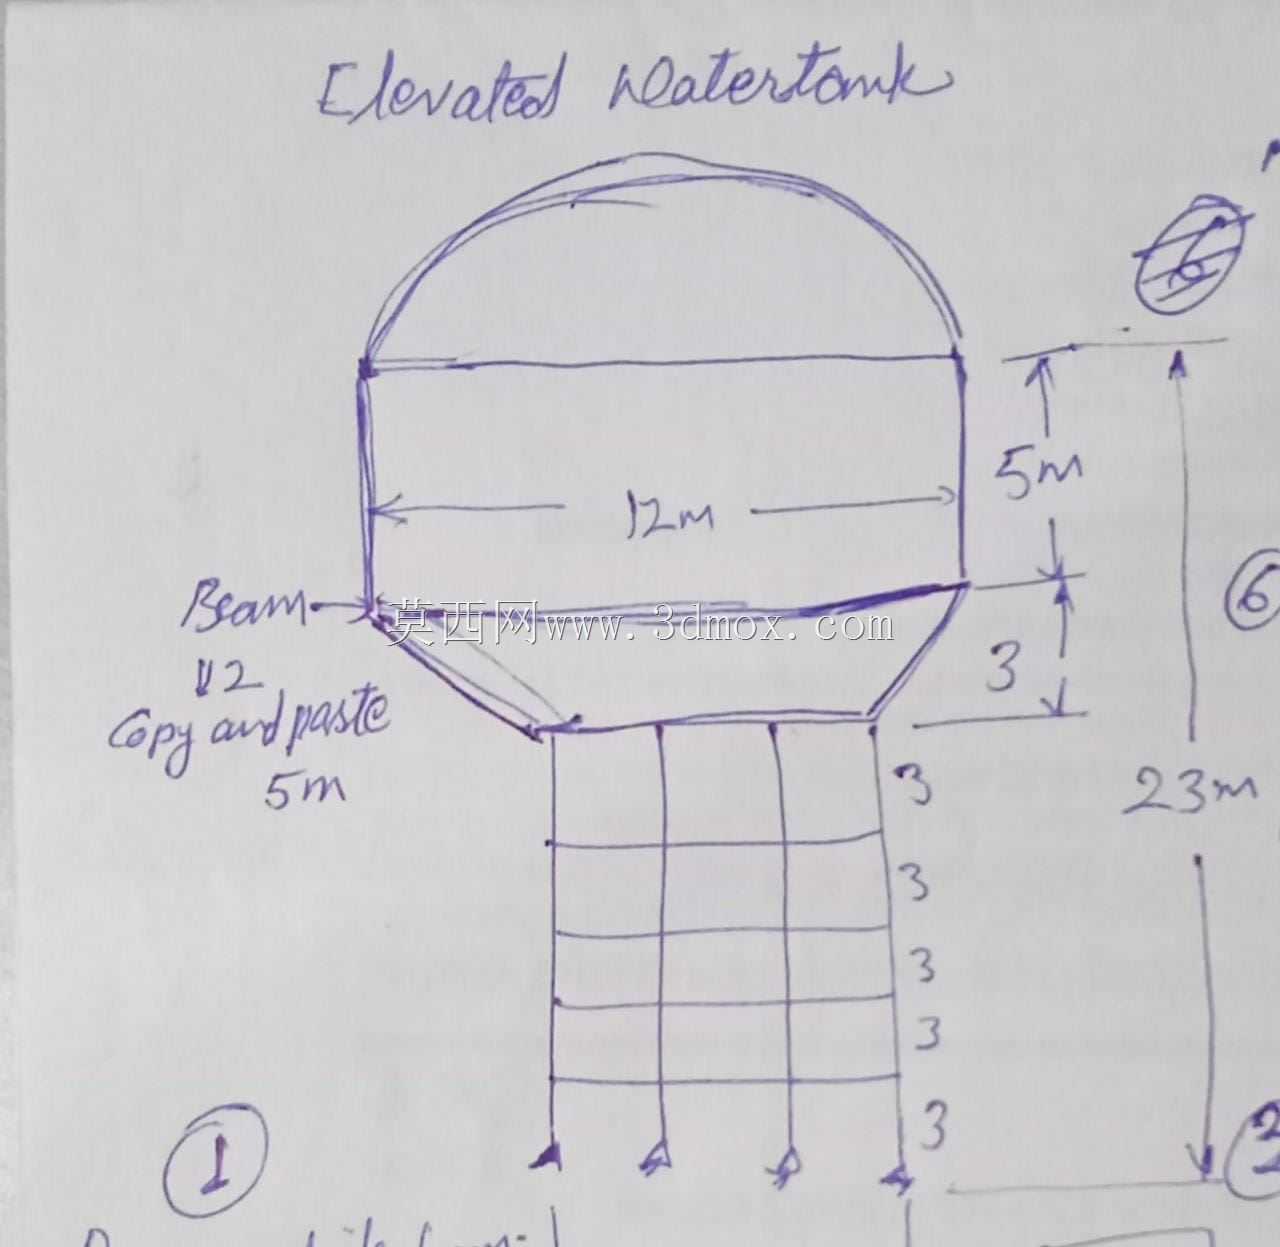 Elevated Watertank
6
5m
12m
Beam
莫西网www.3dmox.com
6
3
12
Copy and paste
5m
3
23m
3
3
3
3
1